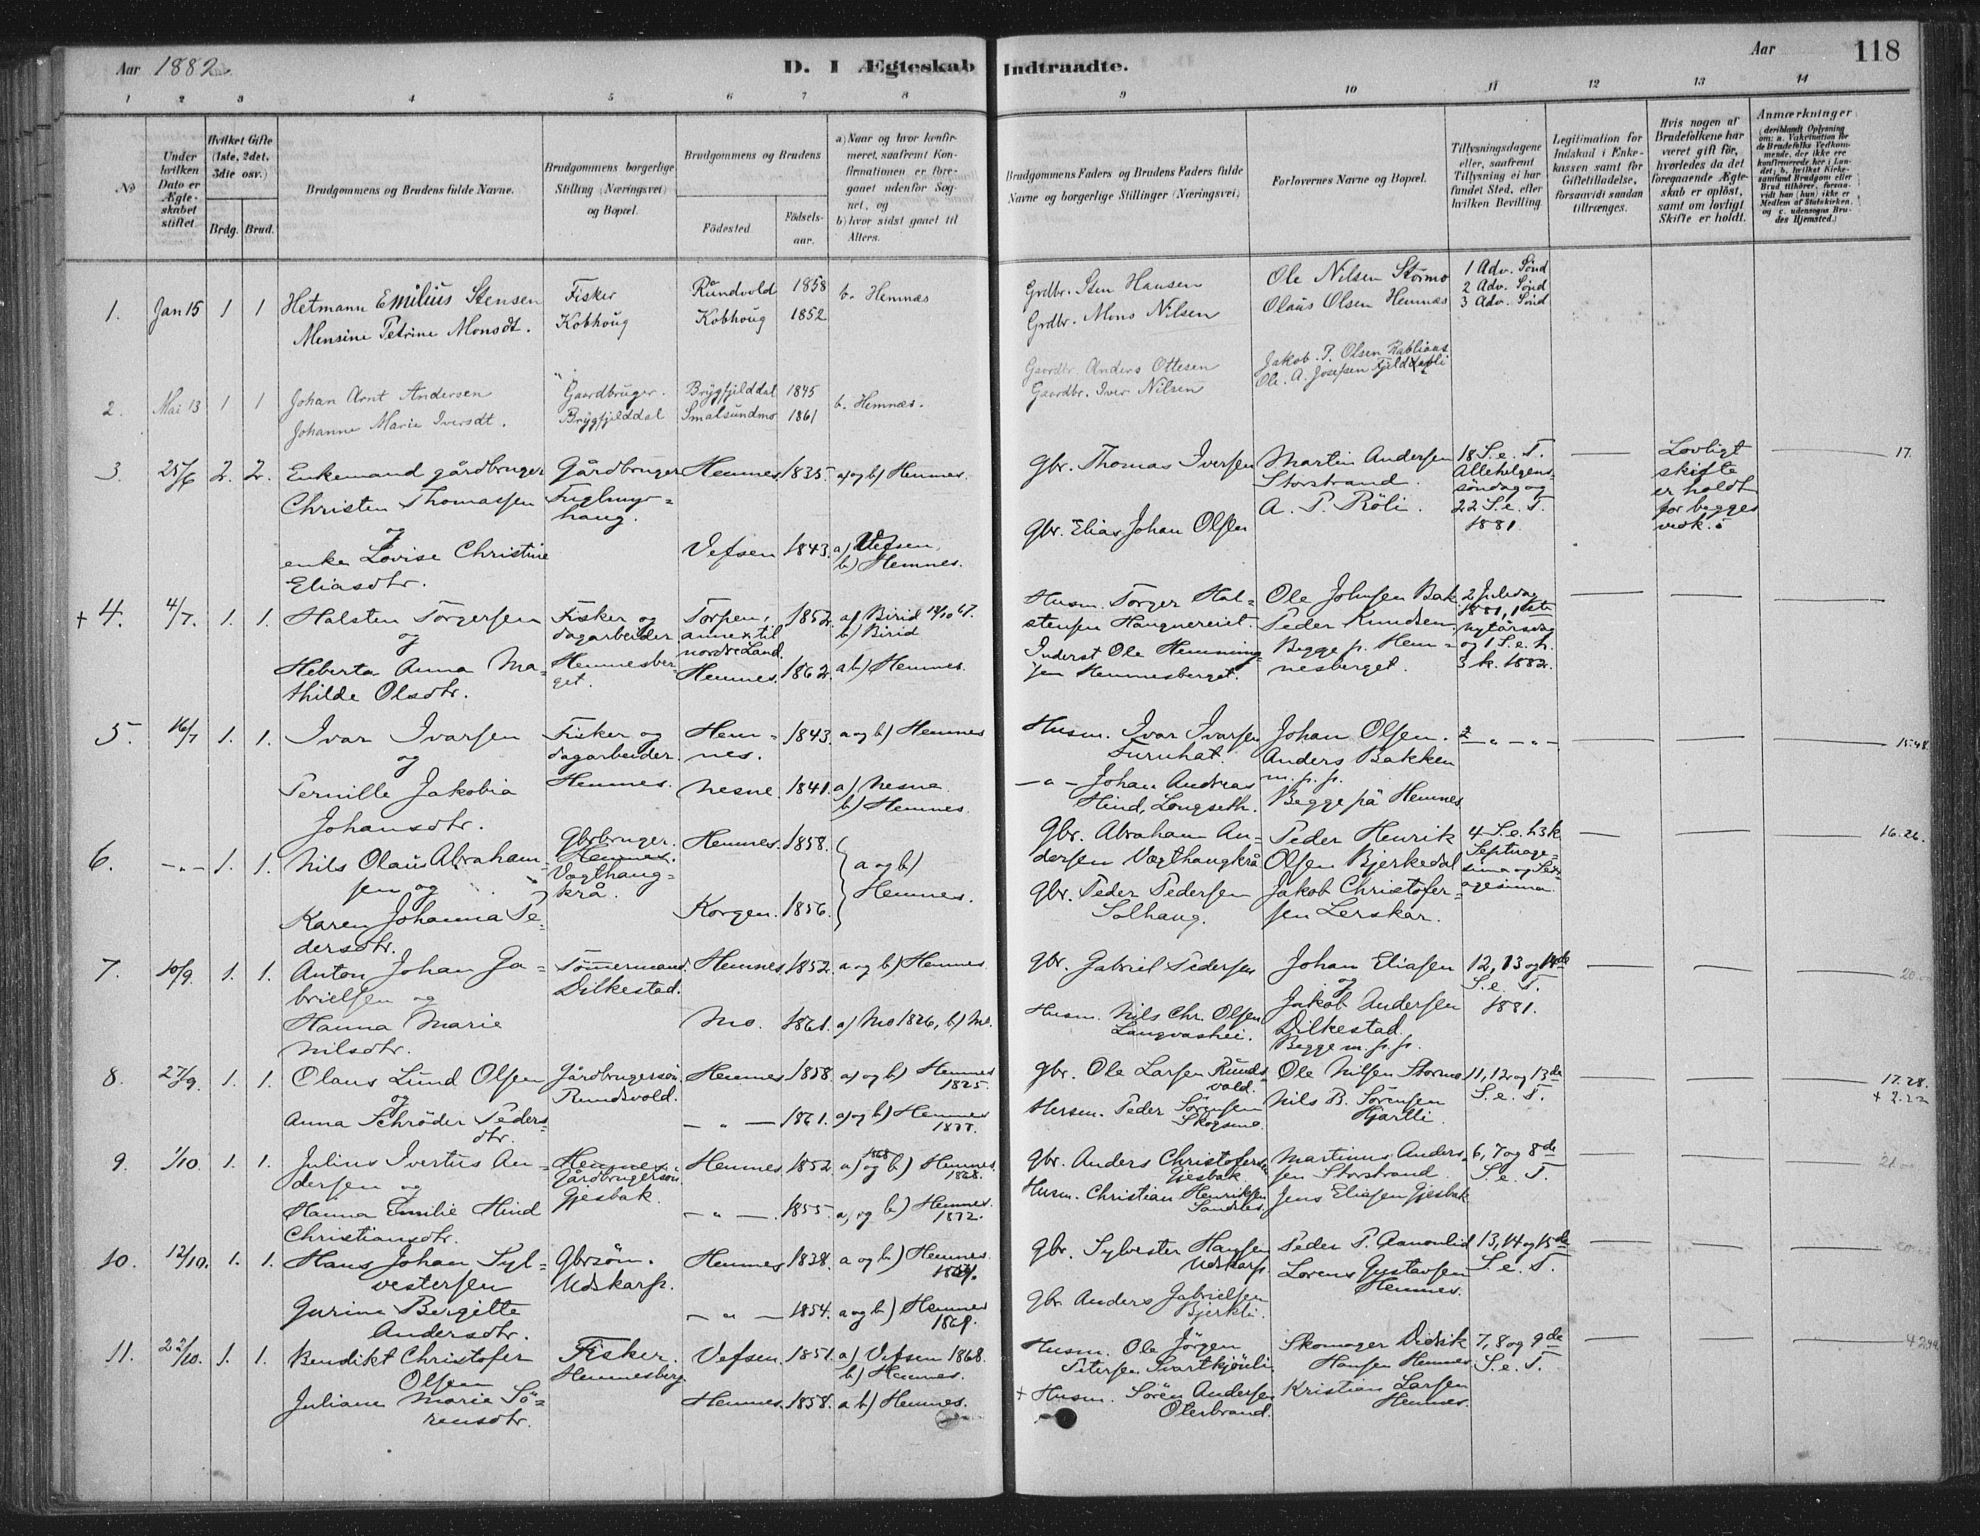 Aar 1882.
D. I Ægteskab Indtraadte.
Aar
118
1 2 3 4 5 6 7 8 9 10 11 12 13 14
No
Under hvilken Dato er Ægteskabet stiftet.
Hvilket Gifte (1ste, 2det, 3die osv.)
Brdg. Brud.
Brudgommens og Brudens fulde Navne.
Brudgommens borgerlige Stilling (Næringsvei) og Bopæl.
Brudgommens og Brudens
Födested. Födsels-aar.
a) Naar og hvor konfirmeret, saafremt Konfirmationen er foregaaet udenfor Sognet, og
b) hvor sidst gaaet til Alters.
Brudgommens Faders og Brudens Faders fulde Navne og borgerlige Stillinger (Næringsvei)
Forlovernes Navne og Bopæl.
Tillysningsdagene eller, saafremt Tillysning ei har fundet Sted, efter hvilken Bevilling.
Legitimation for Indskud i Enkekassen samt for Giftetilladelse, forsaavidt saadan tiltrænges.
Hvis nogen af Brudefolkene har været gift för, hvorledes da det foregaaende Ægteskab er oplöst, samt om lovligt Skifte er holdt.
Anmærkninger
(deriblandt Oplysning om: a. Vakcination for de Brudefolks Vedkommende, der ikke ere konfirmerede her i Landet; b. hvilket Kirkesamfund Brudgom eller Brud tilhörer, forsaavidt han (hun) ikke er Medlem af Statskirken, og c. udensogns Brudes Hjemsted.)
1. Jan 15 1 1 Hetmann Emilius Stensen Fisker Rundvold 1858 b. Hemnæs Grdbr. Sten Hansen Ole Nilsen Stormo 1 Adv. Sönd
2 Adv. Sönd
Mensine Petrine Monsdt. Kobhoug Kobhoug 1852 Grdbr. Mons Nilsen Olaus Olsen Hemnæs 3 Adv. Sönd
2. Mai 13 1 1 Johan Arnt Andersen Gaardbruger. Brygfjelddal 1845 b. Hemnæs. Gaardbr. Anders Ottesen Jakob. P. Olsen
Johanne Marie Iversdt. Brygfjelddal Smalsundmo 1861 Gaardbr. Iver Nilsen Ole. A. Josefsen
3. 25/6 2. 2. Enkemand gårdbruger Gårdbruger Hemnes. 1835. a) og b) Hemnes. Gbr. Thomas Iversen Martin Andersen 18 S. e. T. Lovligt 17.
Christen Thomassen Fuglmyr= Storstrand. Allehelgens= skifte
og haug. A. P. Röli. söndag og er holdt
22 S. e. T. for begges
enke Lovise Christine Vefsen 1843. a) Vefsen, Gbr. Elias Johan Olsen 1881. vedk.
Eliasdtr. b) Hemnes.
+ 4. 4/7. 1. 1. Halsten Torgersen Fisker og Torpen, 1852. a) Birid 13/10 67. Husm. Torger Hal= Ole Johnsen Bak 2 Juledag
og dagarbeider annex til b) Birid stensen Haugnereiet. Peder Knudsen. 1881, 1ste
nordre Land. Nytårsdag
Heberta Anna Ma= Hemnesber= Hemnes. 1862. a b) Hemnes. Inderst Ole Hemming= Begge p. Hem= og 1 S. e. h.
thilde Olsdtr. get. sen Hemnesberget. nesberget. 3 k. 1882.
5. 16/7 1. 1. Ivar Ivarsen Fisker og Hem= 1843. a og b) Hemnes Husm. Ivar Ivarsen Johan Olsen. 2 – „ – „ – 15.48.
og dagarbeider. nes. Furuhat. Anders Bakken
Pernille Jakobia Hemnes. Nesne 1841. a) Nesne – „ – Johan Andreas m. p. p.
Johansdtr. b) Hemnes. Hind, Langseth. Begge på Hemnes
6. – „ – 1. 1. Nils Olaus Abraham= Gbrbruger. Hemnes. 1858. a og b) Gbr. Abraham An= Peder Henrik 4 S. e. h3k 16.26.
Hemnes. dersen Vægthaugkrå Olsen Bjerkedal Septuage=
sen og Vægthaug= Hemnes. sima og Sex=
Karen Johanna Pe= krå. Korgen. 1856. Gbr. Peder Pedersen Jakob Christofer= agesima.
dersdtr. Solhaug. sen Lerskar.
7. 10/9. 1. 1. Anton Johan Ga= Tömmermand. Hemnes 1852. a og b) Hemnes. Gbr. Gabriel Pedersen Johan Eliasen 12, 13 og 14de
brielsen og Dilkestad. og S. e. T.
Hanna Marie Mo. 1861. a) Mo 1876, b) Mo. Husm. Nils Chr. Olsen Jakob Andersen 1881.
Nilsdtr. Langvashei. Dilkestad.
Begge m. p. p.
8. 27/9. 1. 1. Olaus Lund Olsen Gårdbrugersön Hemnes 1858. a) og b) Hemnes Gbr. Ole Larsen Runds= Ole Nilsen Stormo 11, 12 og 13de 17.28.
og Rundsvold. vold. S. e. T.
Anna Schröder Peders= – „ – 1861. a) og b) Hemnes Husm. Peder Sörensen Nils B. Sörensen
dtr. Skogsmo. Hjartli
9. 1/10. 1. 1. Julius Ivertus An= Hemnes. Hemnes 1852. a) og b) Hemnes Gbr. Anders Christofersen Martinus Anders= 6, 7 og 8de
dersen og Gårdbrugersön 1868. Gjesbak. sen Storstrand S. e. T.
Hanna Emilie Hind Gjesbak. – „ – 1855. a, og b) Hemnes. Husm. Christian Henriksen Jens Eliasen Gjesbak
Christiansdtr. 1872.
10. 12/10. 1. 1. Hans Johan Syl= Gbrsön. Hemnes 1838. a og b) Hemnes. Gbr. Sylvester Hansen Peder P. Aanonlid 13, 14 og 15de
vestersen Udskarp. Udskarp. Lorens Gustavsen S. e. T.
Gurine Bergitte – „ – 1854. a og b) Hemnes Gbr. Anders Gabrielsen Hemnes.
Andersdtr. 1869. Bjerkli.
11. 22/10. 1. 1. Bendikt Christofer Fisker. Vefsen 1851. a) Vefsen 1868. Husm. Ole Jörgen Skomager Didrik 7, 8 og 9de
Olsen Hemnesberg b) Hemnes. Petersen Svartkjönli Hansen Hemnes S. e. T.
Juliane Marie Sö= Hemnes. 1858. a b) Hemnes. + Husm. Sören Andersen Kristian Larsen
rensdtr. Oterbrand. Hemnes.